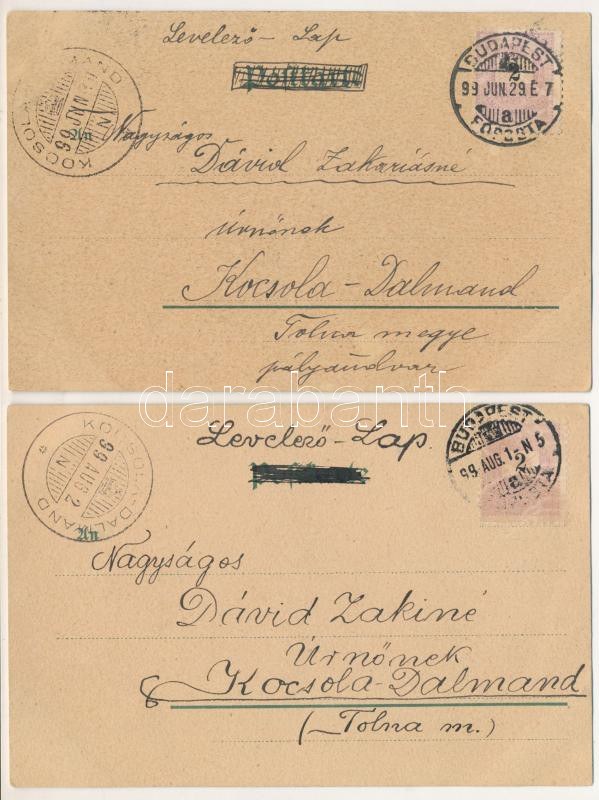 Levelező-Lap
Postkarte
KOCSOLA-DALMAND
BUDAPEST
2/2
99 JUN. 29. E 7
a
FŐPOSTA
An Nagyságos
Dávid Zakariásné
úrnőnek
Kocsola-Dalmand
Tolna megye
pályaudvar
darabanth
Levelező-Lap.
KOCSOLA-DALMAND
99 AUG 2
N
BUDAPEST
2/2
99 AUG. 1. N 5
a
An
Nagyságos
Dávid Zakiné
Úrnőnek
Kocsola-Dalmand
(Tolna m.)